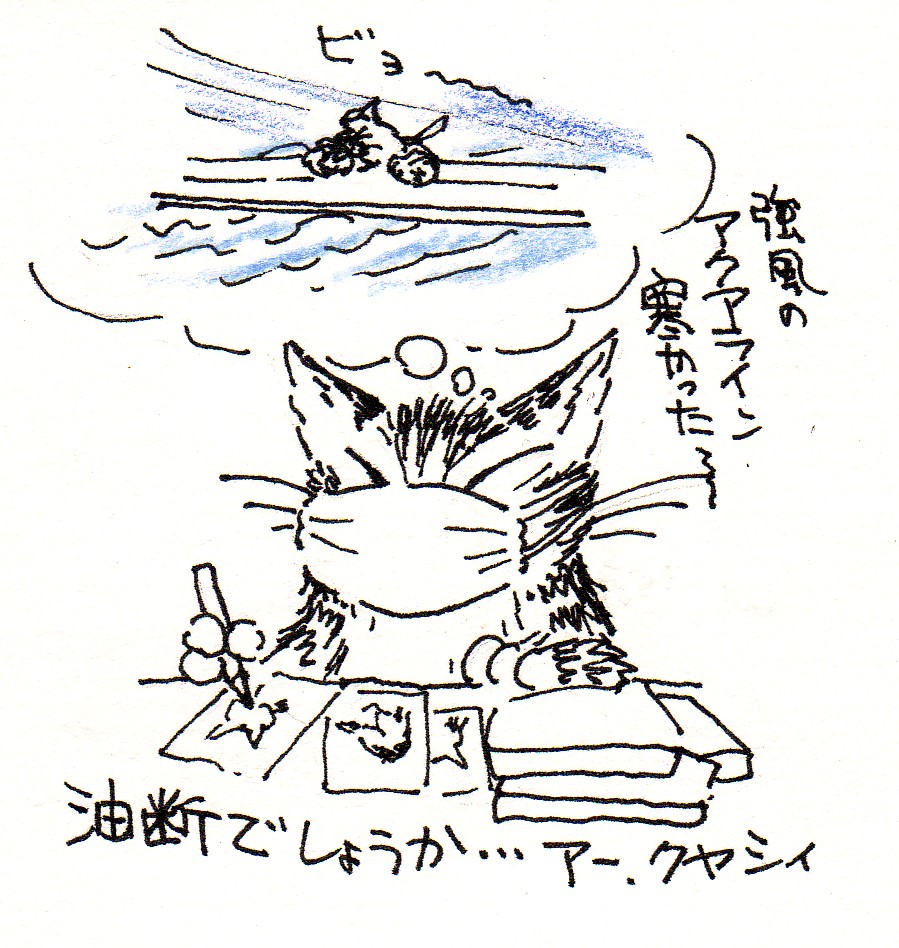 ビョ〜
強風の
アクアライン
寒かった〜
油断でしょうか…
アー.クヤシィ